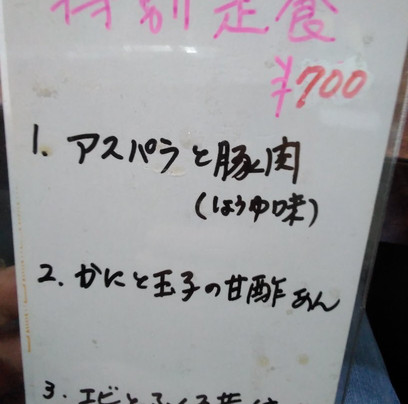 特別定食
¥700
1. アスパラと豚肉
(しょうゆ味)
2. かにと玉子の甘酢あん
3. エビと